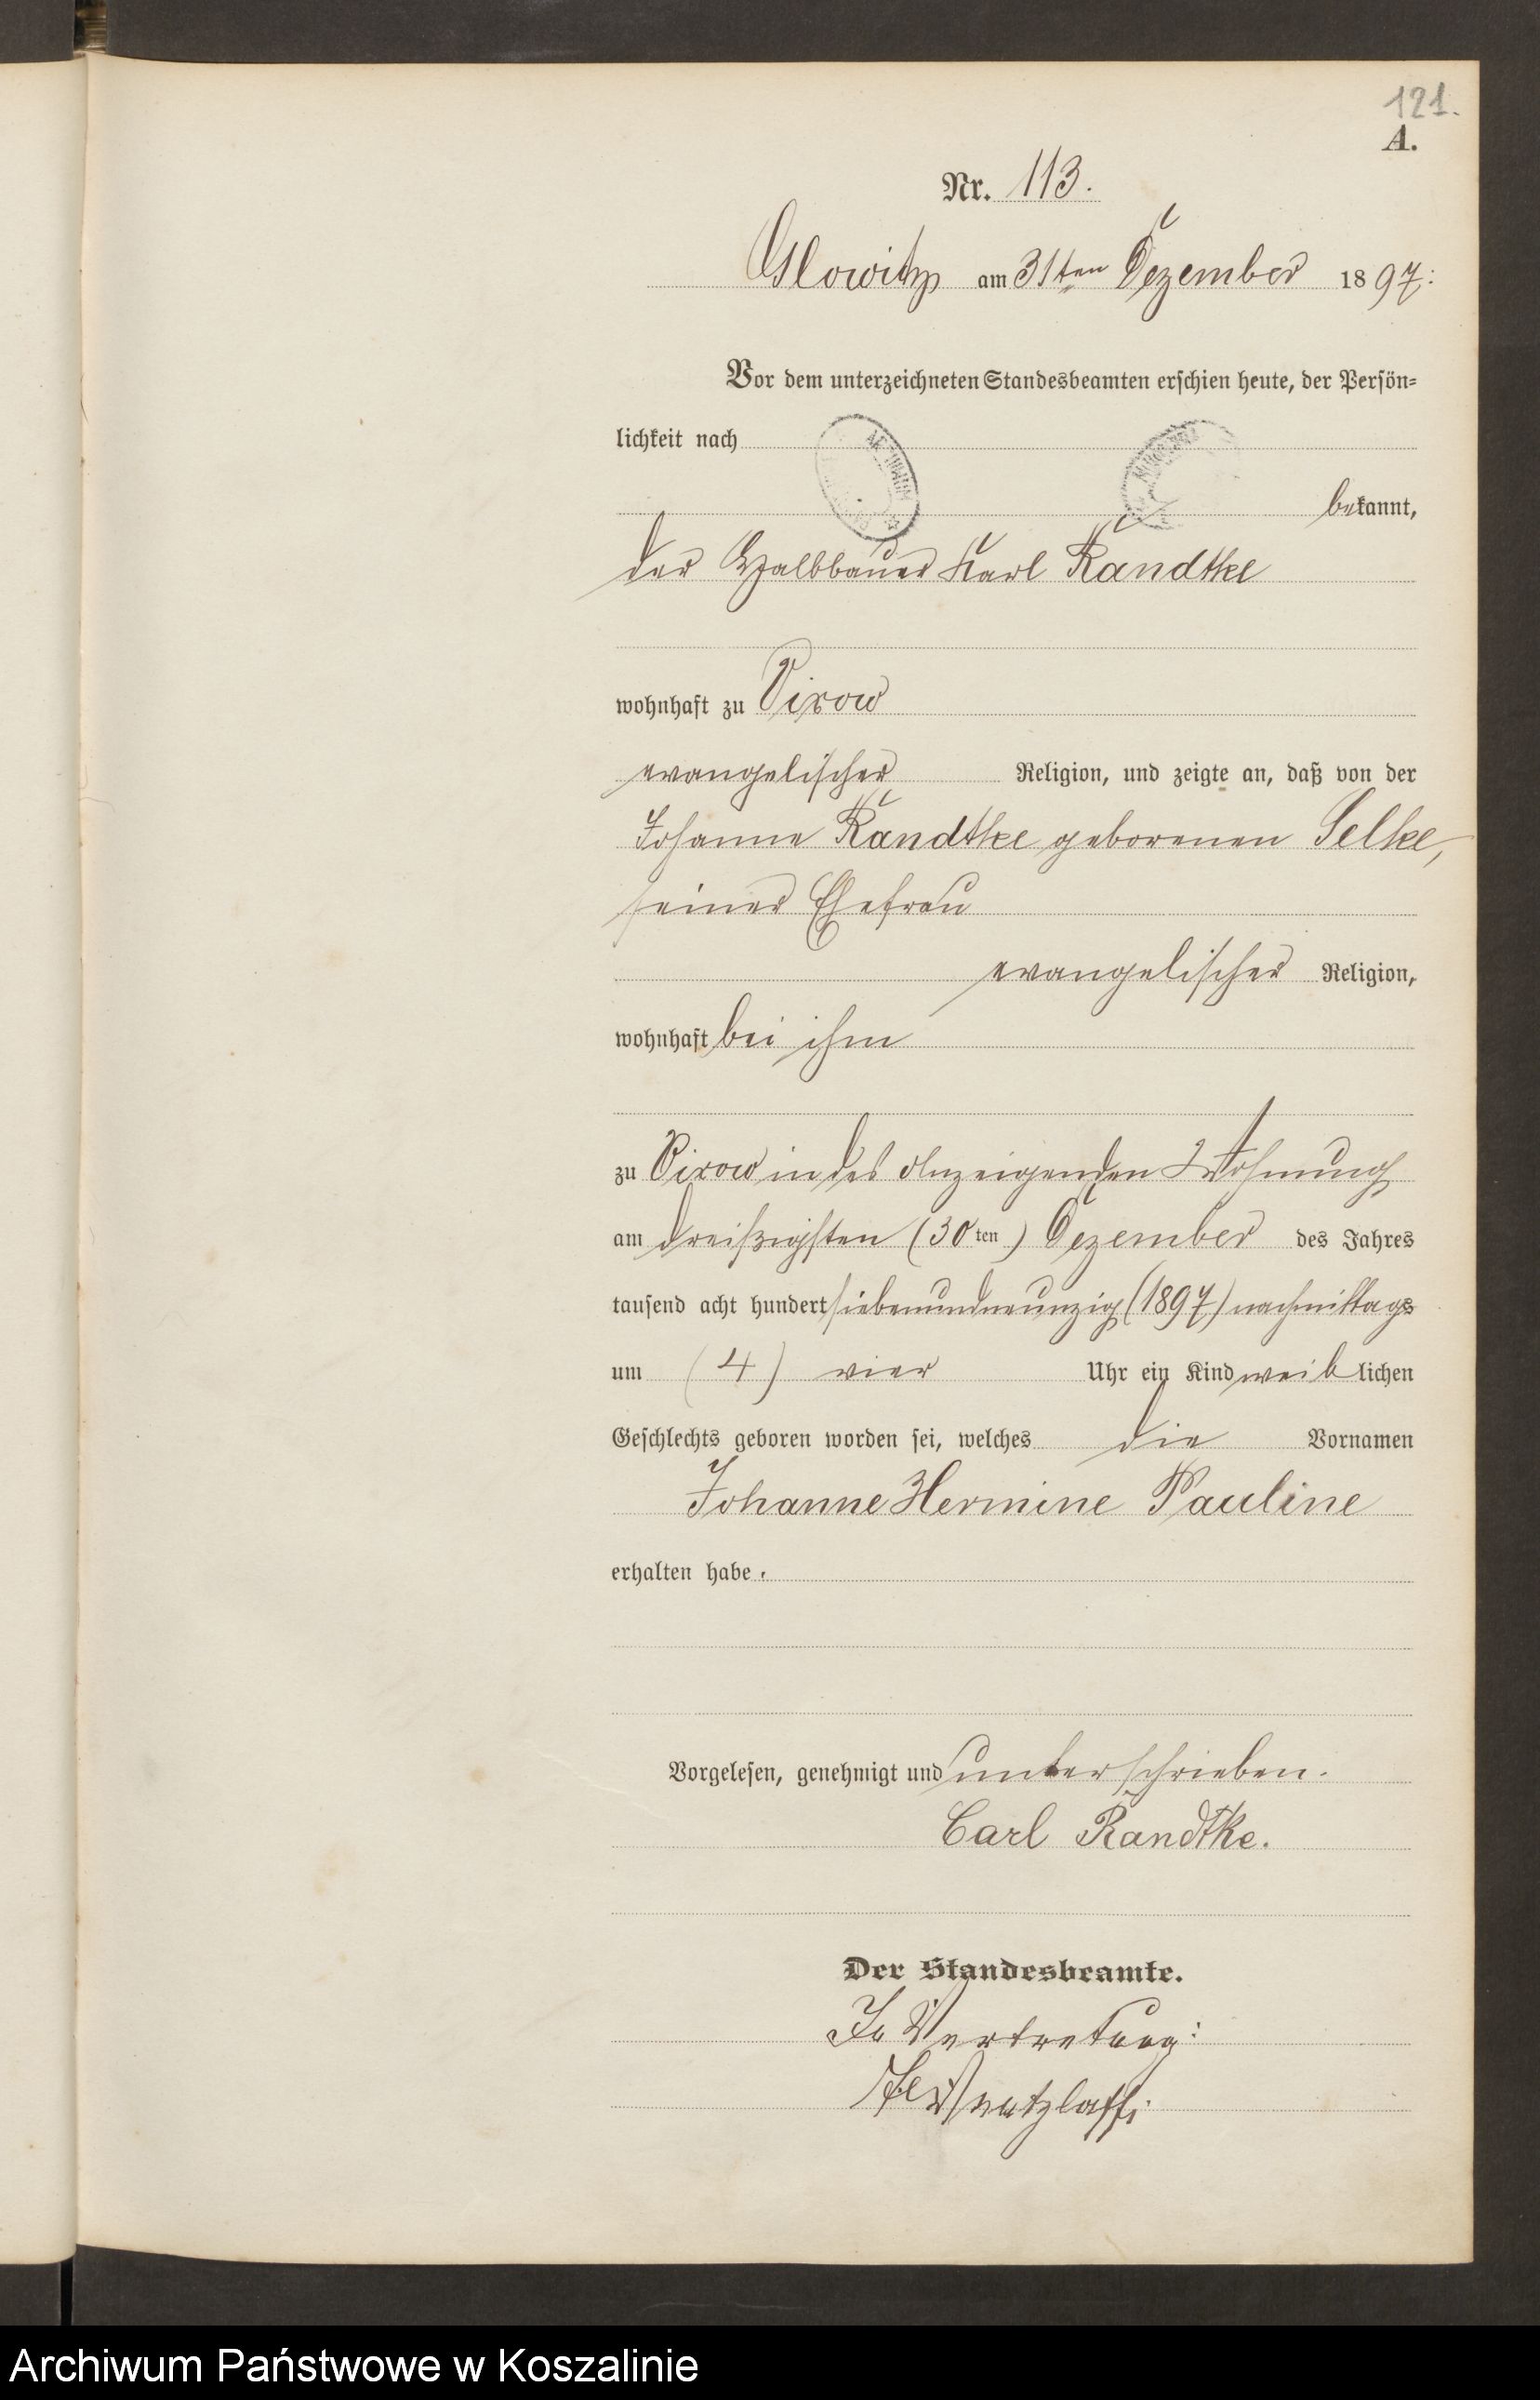 121.
A.
Nr. 113.
Glowitz am 31ten Dezember 1897:
Vor dem unterzeichneten Standesbeamten erschien heute, der Persön=
lichkeit nach
bekannt,
der Halbbauer Karl Randtke
wohnhaft zu Virow
evangelischer Religion, und zeigte an, daß von der
Johanne Randtke geborenen Selke,
seiner Ehefrau
evangelischer Religion,
wohnhaft bei ihm
zu Virow in des Anzeigenden Wohnung
am dreißigsten (30ten) Dezember des Jahres
tausend acht hundert siebenundneunzig (1897) nachmittags
um (4) vier Uhr ein Kind weiblichen
Geschlechts geboren worden sei, welches die Vornamen
Johanne Hermine Pauline
erhalten habe.
Vorgelesen, genehmigt und unterschrieben.
Carl Randtke.
Der Standesbeamte.
In Vertretung:
Archiwum Państwowe w Koszalinie